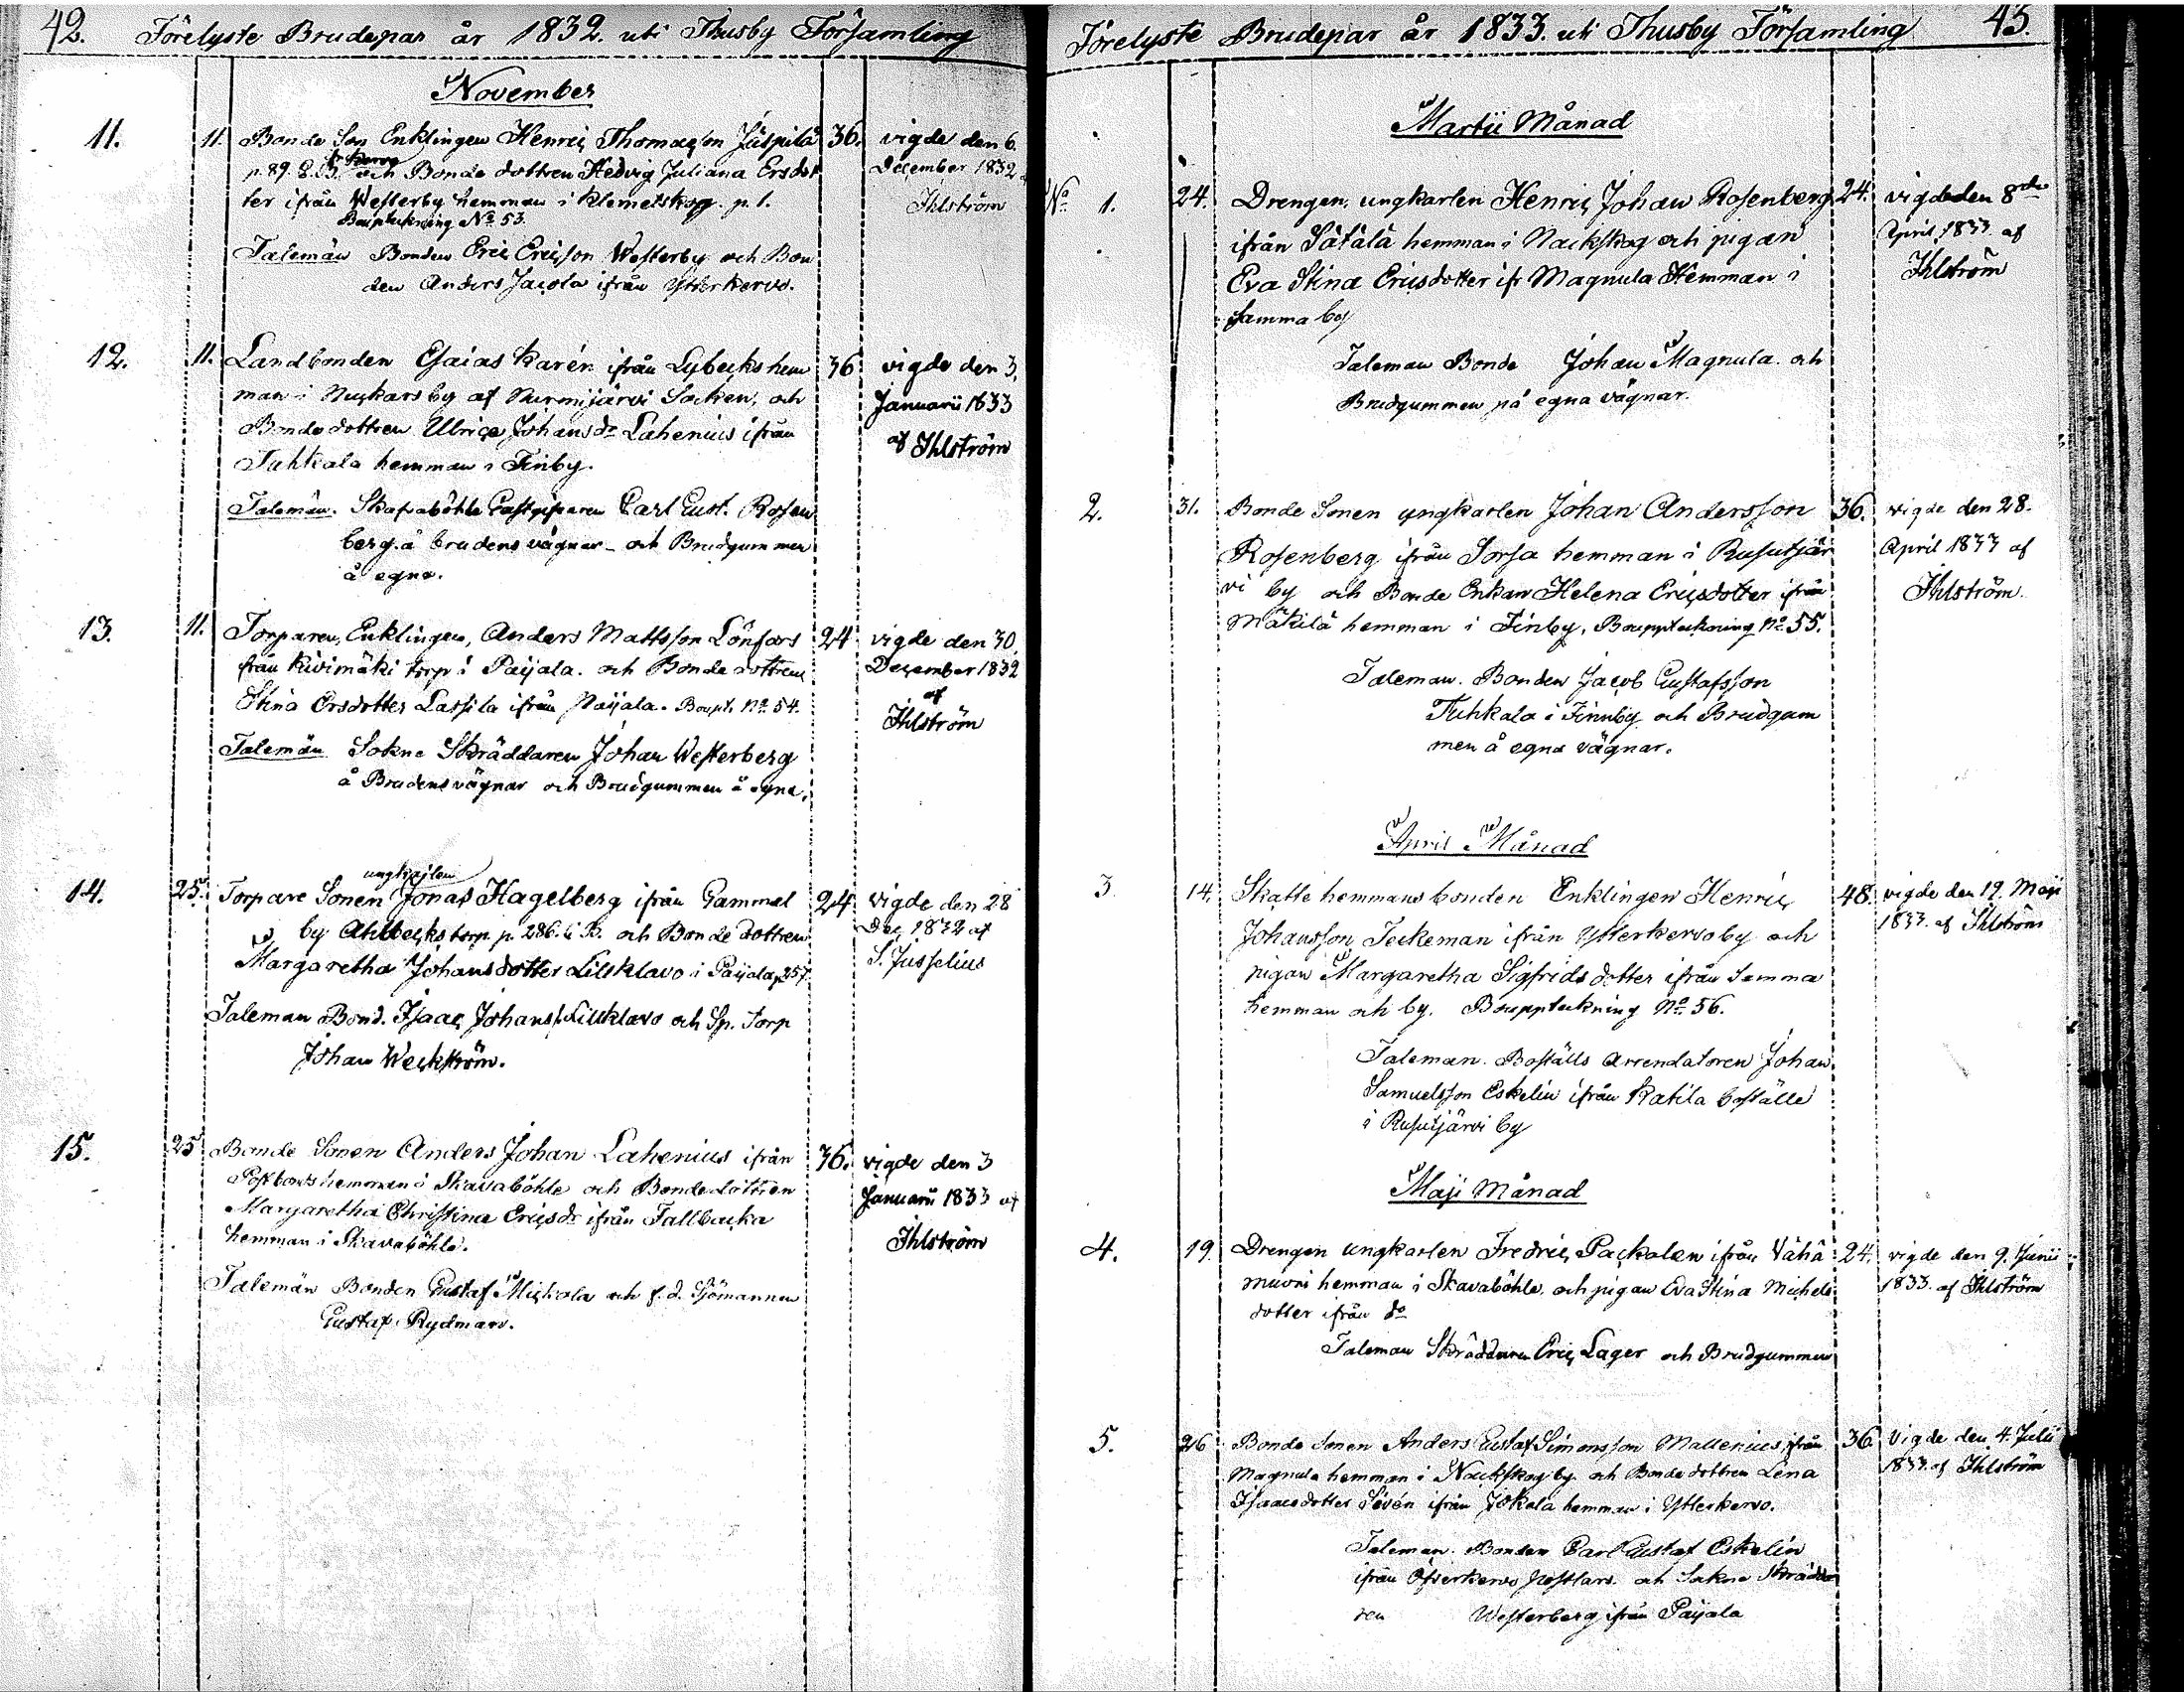 42. Förelyste Brudepar år 1832. uti Thusby Församling
November
11. 11. Bonde Son Enklingen Henric Thomasson Jäspilä 36. vigde den 6.
p. 89. och Bonde dottren Hedvig Juliana Ersdot December 1832
ter ifrån Westerby hemman i Klemetskog. p. 1. Ihlström
Bouptekning No 53.
Talemän Bonden Eric Ericsson Westerby och Bon
den Anders Jacola ifrån Ytterkervo.
12. 11. Landbonden Esaias Karén ifrån Lybecks hem 36 vigde den 3.
man i Nuckars by af Nurmijärvi Socken, och Januarii 1833
Bonde dottren Ulrica Johansdr Lahenius ifrån af Ihlström
Tuhkala hemman i Finby.
Talemän. Skafvaböhle Gästgifvaren Carl Gust. Rosen
berg å brudens vägnar och Brudgummen
å egna.
13. 11. Torparen, Enklingen, Anders Mattsson Lönfors 24 vigde den 30.
från Kivimäki torp i Paijala. och Bonde dottren December 1832
Stina Ersdotter Lassila ifrån Paijala. Boupt. No 54. af
Ihlström
Talemän Sokne Skräddaren Johan Westerberg
å Brudens vägnar och Brudgummen å egna.
ungkarlen
14. 25. Torpare Sonen Jonas Hagelberg ifrån Gammel 24 vigde den 28
by Ahlbecks torp p. 286. och Bonde dottren Dec. 1832 af
Margaretha Johansdotter Lillklavo i Paijala p. 257. S. Jusselius
Taleman Bond. Isaac Johanss. Lillklavo och Sp. Torp
Johan Weckström.
15. 25 Bonde Sonen Anders Johan Lahenius ifrån 36. vigde den 3
Postbonds hemman i Skavaböhle och Bondedottren Januarii 1833 af
Margaretha Christina Ericsdr ifrån Tallbacka
hemman i Skavaböhle. Ihlström
Talemän Bonden Gustaf Mickola och f.d. Sjömannen
Gustaf Rydman.
Förelyste Brudepar år 1833. uti Thusby Församling 43.
Martii Månad
No 1. 24. Drengen, ungkarlen Henric Johan Rosenberg 24. vigde den 8de
ifrån Sätälä hemman i Nackskog och pigan April 1833 af
Eva Stina Ericsdotter ifr Magnula Hemman i Ihlström
samma by
Taleman Bonde Johan Magnula och
Brudgummen på egna vägnar.
2. 31. Bonde Sonen ungkarlen Johan Andersson 36. vigde den 28.
Rosenberg ifrån Sorsa hemman i Rusutjär April 1833 af
vi by och Bonde Enkan Helena Ericsdotter ifrån Ihlström.
Mäkilä hemman i Finby, Bouppteckning No 55.
Taleman. Bonden Jacob Gustafsson
Tuhkala i Finnby och Brudgum
men å egna vägnar.
April Månad
3. 14. Skatte hemmans bonden Enklingen Henric 48. vigde den 19. Maji
Johansson Teckeman ifrån Ytterkervo by och 1833. af Ihlström
pigan Margaretha Sigfrids dotter ifrån samma
hemman och by. Bouppteckning No 56.
Taleman. Boställs Arrendatoren Johan
Samuelsson Eskelin ifrån Katila boställe
i Rusutjärvi by
Maji Månad
4. 19. Drengen ungkarlen Fredric Packalen ifrån Vähä 24. vigde den 9. Junii
muori hemman i Skavaböhle, och pigan Eva Stina Michels 1833. af Ihlström
dotter ifrån do
Taleman Skräddaren Eric Lager och Brudgummen
5. 26 Bonde Sonen Anders Gustaf Simonsson Mallenius, ifrån 36 Vigde den 4. Julii
Magnula hemman i Nackskog by och Bonde dottren Lena 1833. af Ihlström
Isaacsdotter Sevén ifrån Jokela hemman i Ytterkervo.
Taleman. Bonden Carl Gustaf Eskelin
ifrån Öfverkervo och Sokne Skrädda
ren Westerberg ifrån Paijala